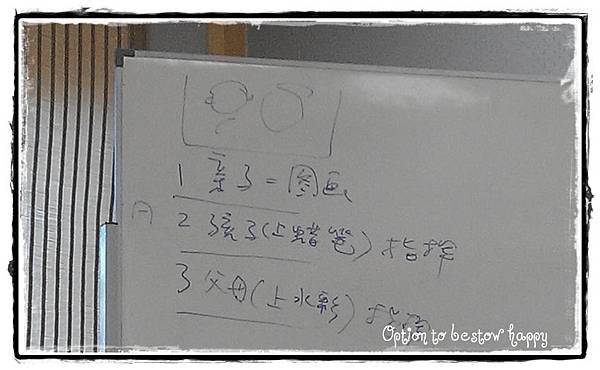 1 親子=圖画
A
2 孩子(上蠟筆) 指揮
3 父母(上水彩)
Option to bestow happy